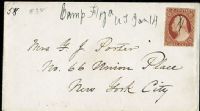 58
Camp Floyd
U T Jan 14
Mrs F J Porter
No. 66 Union Place
New York City